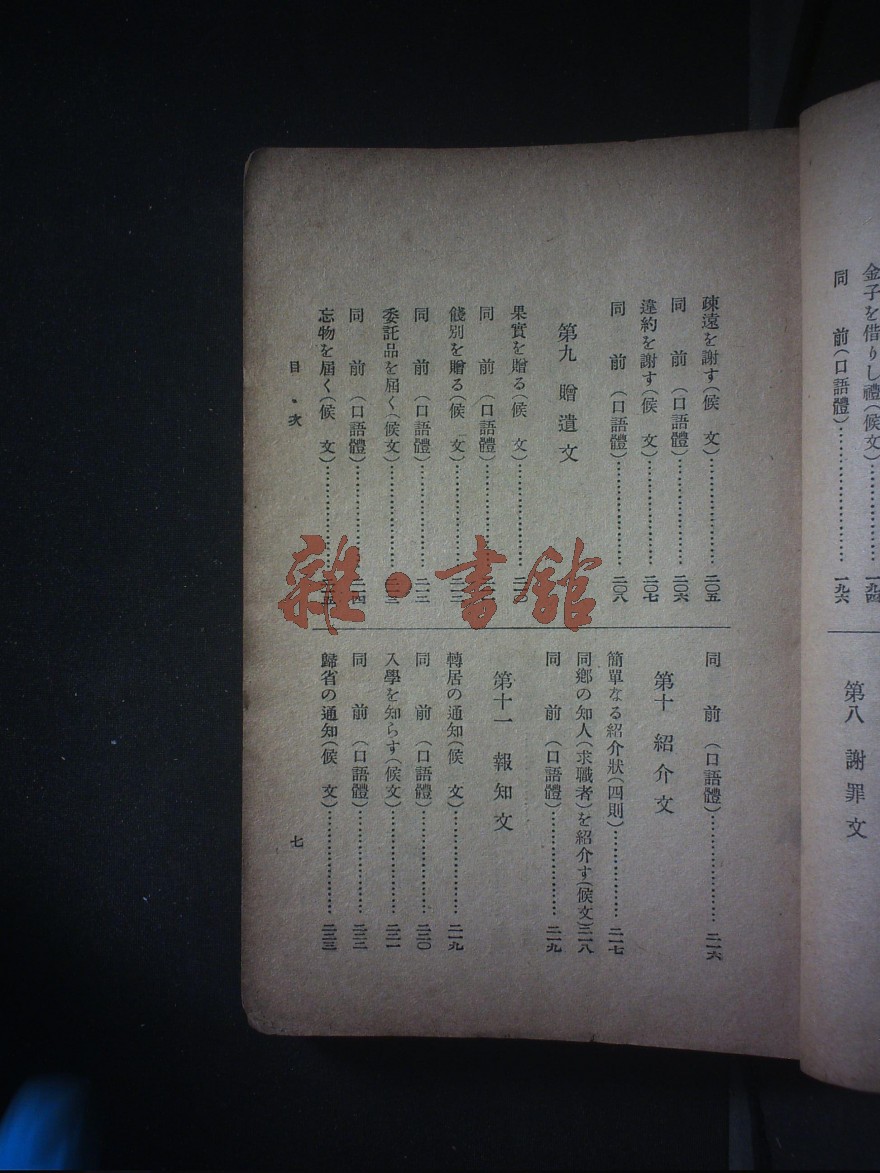 金子を借りし禮(候文)…………一九四
同　前(口語體)…………一九六
第八　謝罪文
疎遠を謝す(候　文)…………二〇五
同　前　(口語體)…………二〇六
違約を謝す(候　文)…………二〇七
同　前　(口語體)…………二〇八
第九　贈遺文
果實を贈る(候　文)…………
同　前　(口語體)…………
餞別を贈る(候　文)…………
同　前　(口語體)…………二一二
委託品を屆く(候文)…………
同　前　(口語體)…………二一四
忘物を屆く(候　文)…………
同　前　(口語體)…………二一六
第十　紹介文
簡單なる紹介狀(四則)…………二一七
同鄕の知人(求職者)を紹介す(候文)二一八
同　前　(口語體)…………二一九
第十一　報知文
轉居の通知(候　文)…………二一九
同　前　(口語體)…………二二〇
入學を知らす(候文)…………二二一
同　前　(口語體)…………二二二
歸省の通知(候　文)…………二二三
目・次
七
雜・書館